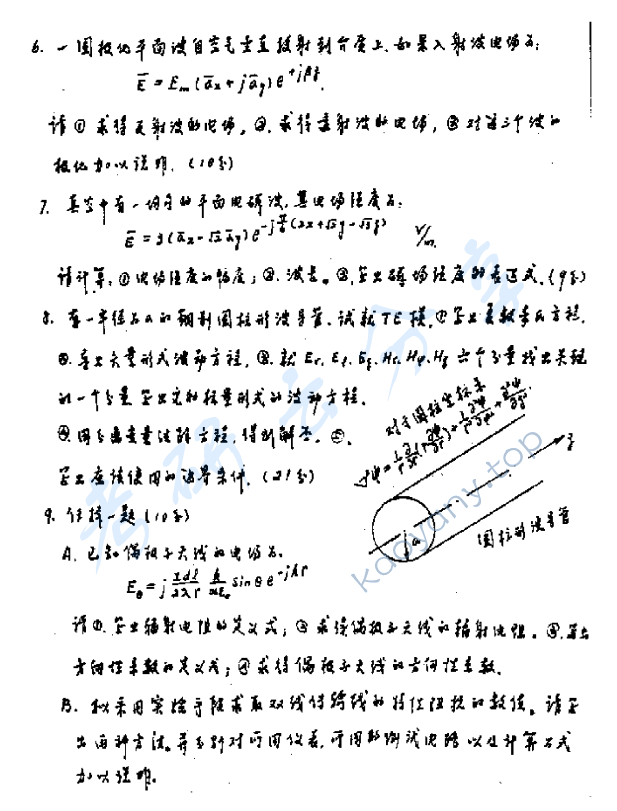 6. 一圆极化平面波自空气垂直投射到介质上,如果入射波电场为:
Ē = Em(āx + jāy)e^{+jβz}.
请①求得反射波的电场。②.求得透射波的电场,③对这三个波的
极化加以说明.(10分)
7. 真空中有一均匀的平面电磁波,其电场强度为:
Ē = 3(āx - √2 āy)e^{-j π/6 (2x+√2y-√3z)} V/m.
请计算:①电场强度的幅度;②.波长。③.写出磁场强度的表达式.(9分)
8. 有一半径为a的铜制圆柱形波导管.试就TE模,①写出麦教韦氏方程.
②.写出矢量形式波动方程,③.就Er.Eφ.Ez.Hr.Hφ.Hz六个分量找出关键
的一个分量写出它的标量形式的波动方程.
④用分离变量法解方程,得到解答。⑤.
写出应该使用的边界条件.(21分)
对于圆柱坐标系
∇²ψ = 1/r ∂/∂r (r ∂ψ/∂r) + 1/r² ∂²ψ/∂φ² + ∂²ψ/∂z²
z
a
圆柱形波导管
9. 任择一题(10分)
A. 已知偶极子天线的电场为.
Eθ = j Idl/2λr k/ωε₀ sinθ e^{-jkr}
请①.写出辐射电阻的定义式;②求得偶极子天线的辐射电阻。③.写出
方向性系数的定义式;④求得偶极子天线的方向性系数.
B. 拟采用实验手段求取双线传输线的特性阻抗的数值。请写
出两种方法。并分别对所用仪表,所用的测试电路以及计算公式
加以说明。
考研云分享
kaoyany.top